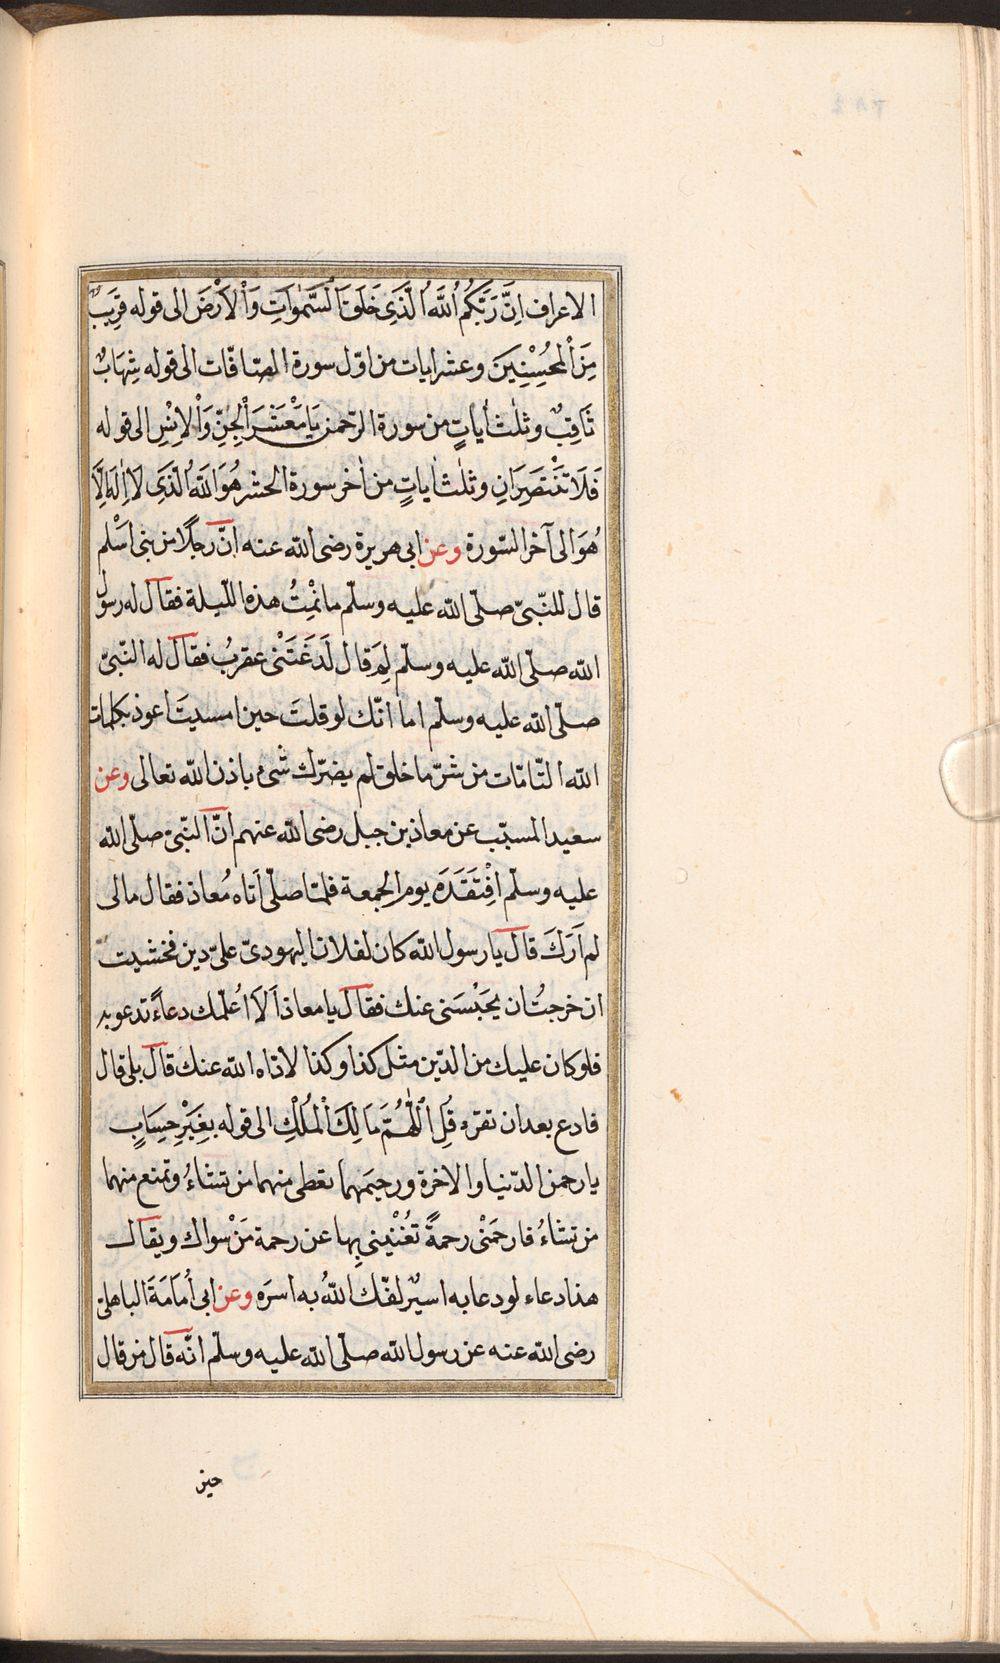 الاعراف اِنَّ رَبَّكُمُ اللّٰهُ الَّذِى خَلَقَ السَّمٰوَاتِ وَالْاَرْضَ الى قوله قَرِيبٌ
مِنَ الْمُحْسِنِينَ وعشر ايات من اوّل سورة الصافّات الى قوله شِهَابٌ
ثَاقِبٌ وثلٰث اٰياتٍ من سورة الرّحمن يَا مَعْشَرَ الْجِنِّ وَالْاِنْسِ الى قوله
فَلَا تَنْتَصِرَانِ وثلٰث اٰياتٍ من اٰخر سورة الحشر هُوَ اللّٰهُ الَّذِى لَا اِلٰهَ اِلَّا
هُوَ الى آخر السّورة وعن ابى هريرة رضى اللّه عنه انّ رجلًا من بنى اَسْلم
قال للنّبىّ صلّى اللّه عليه وسلّم ما نِمْتُ هذه اللّيلة فقال له رسول
اللّه صلّى اللّه عليه وسلّم لِمَ قال لَدَغَتْنى عقربُ فقال له النّبىّ
صلّى اللّه عليه وسلّم اما انّك لو قلتَ حين امسيتَ اعوذ بكلمات
اللّه التّامّات من شرّ ما خلق لم يضرّك شىء باذن اللّه تعالى وعن
سعيد المسيّب عن معاذ بن جبل رضى اللّه عنهم انّ النّبىّ صلّى اللّه
عليه وسلّم اِفْتَقَدَه يوم الجمعة فلمّا صلّى اَتاه مُعاذ فقال مالى
لم اَرَكَ قال يا رسول اللّه كان لفلان اليهودىّ علىّ دين فخشيت
ان خرجتُ ان يَحْبَسَنى عنك فقال يا معاذ اَلَا اُعلّمك دعاءً تدعو به
فلو كان عليك من الدّين مثل كذا وكذا لاداه اللّه عنك قال بلى قال
فادع بعد ان تقرء قُلِ اللّٰهُمَّ مَالِكَ الْمُلْكِ الى قوله بِغَيْرِ حِسَابٍ
يا رحمن الدّنيا والاخرة ورحيمَهما تعطى منهما من تشاءُ وتمنع منهما
من تشاءُ فارحمْنى رحمةً تُغْنينى بِها عن رحمة مَنْ سواك ويقال
هذا دعاء لو دعا به اسيرٌ لفّك اللّهُ به اسرَه وعن ابى اُمَامَةَ الباهلى
رضى اللّه عنه عن رسول اللّه صلّى اللّه عليه وسلّم انّه قال من قال
حين